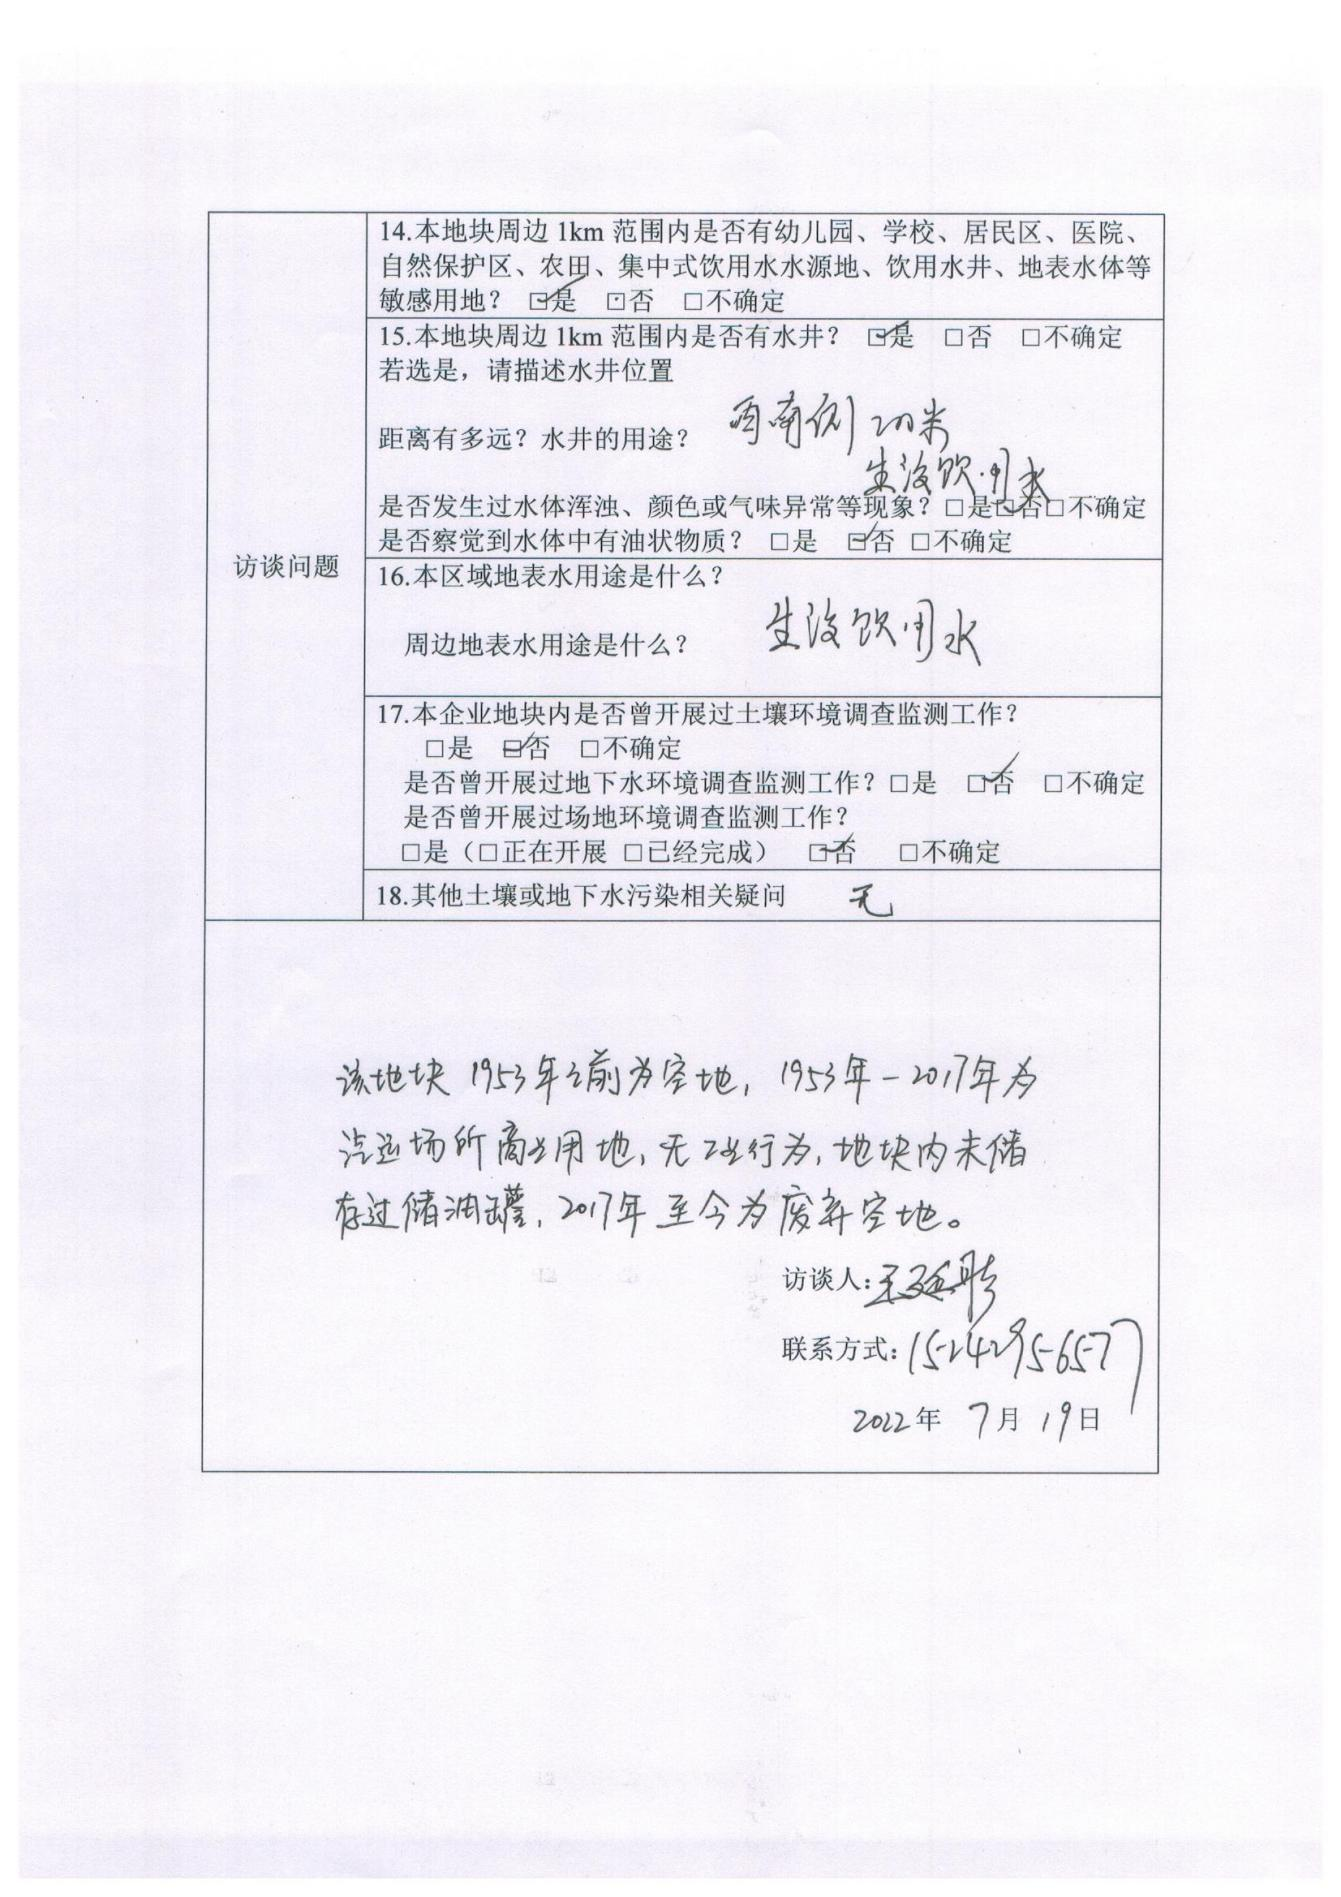 14.本地块周边 1km 范围内是否有幼儿园、学校、居民区、医院、
自然保护区、农田、集中式饮用水水源地、饮用水井、地表水体等
敏感用地？ ☑是 ⊡否 □不确定
15.本地块周边 1km 范围内是否有水井？ ☑是 □否 □不确定
若选是，请描述水井位置
西南侧200米
距离有多远？水井的用途？
生活饮用水
是否发生过水体浑浊、颜色或气味异常等现象？□是☑否□不确定
是否察觉到水体中有油状物质？ □是 ☑否 □不确定
访谈问题
16.本区域地表水用途是什么？
周边地表水用途是什么？ 生活饮用水
17.本企业地块内是否曾开展过土壤环境调查监测工作？
□是 ☑否 □不确定
是否曾开展过地下水环境调查监测工作？□是 ☑否 □不确定
是否曾开展过场地环境调查监测工作？
□是（□正在开展 □已经完成） ☑否 □不确定
18.其他土壤或地下水污染相关疑问 无
该地块1953年之前为空地，1953年-2017年为
汽运场所商业用地，无工业行为，地块内未储
存过储油罐，2017年至今为废弃空地。
访谈人:王
联系方式:15242956577
2022年 7月 19日